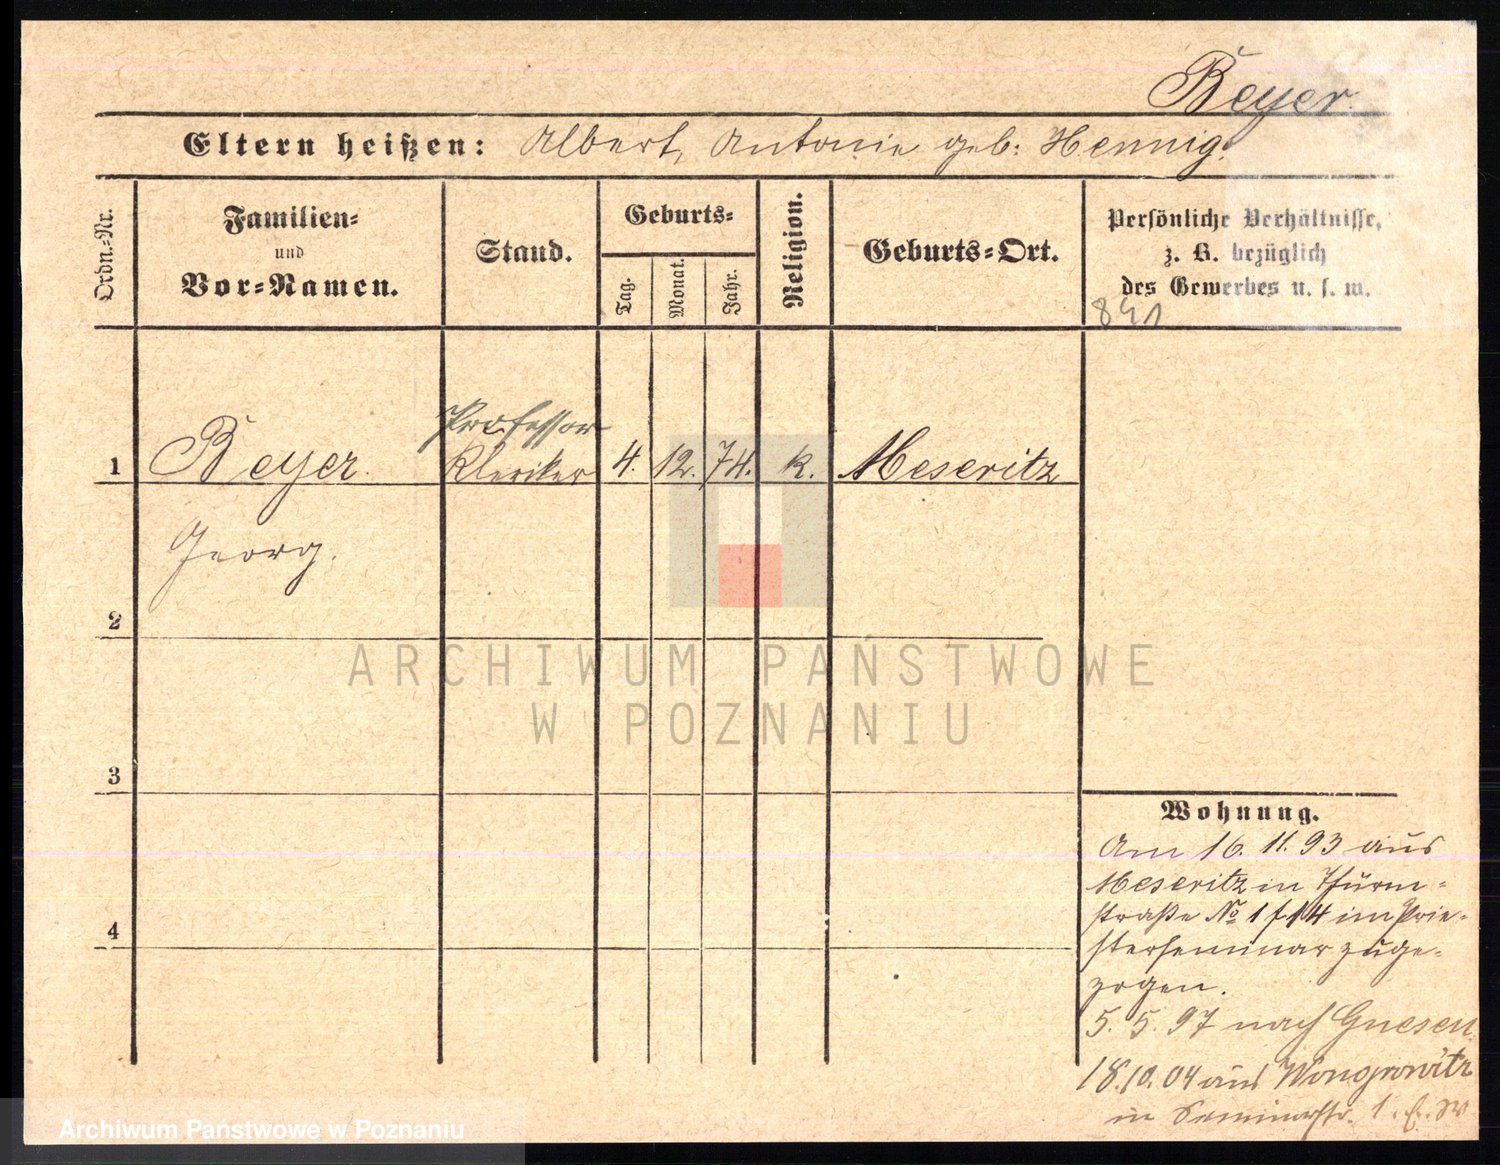 Beyer.
Eltern heißen: Albert, Antonie geb: Hennig.
Ordn.-Nr.
Familien-
und
Vor-Namen.
Stand.
Geburts-
Tag.
Monat.
Jahr.
Religion.
Geburts-Ort.
Persönliche Verhältnisse,
z. B. bezüglich
des Gewerbes u. s. w.
841
Professor
1 Beyer. Kleriker 4. 12. 74. k. Meseritz
Georg.
2
ARCHIWUM PAŃSTWOWE
W POZNANIU
3
4
Wohnung.
Am 16. 11. 93 aus
Meseritz in Thurm-
straße No 1 im Prie-
sterseminar zuge-
zogen.
5. 5. 97 nach Gnesen
18.10.04 aus Wongrowitz
in Seminarstr. 1.
Archiwum Państwowe w Poznaniu